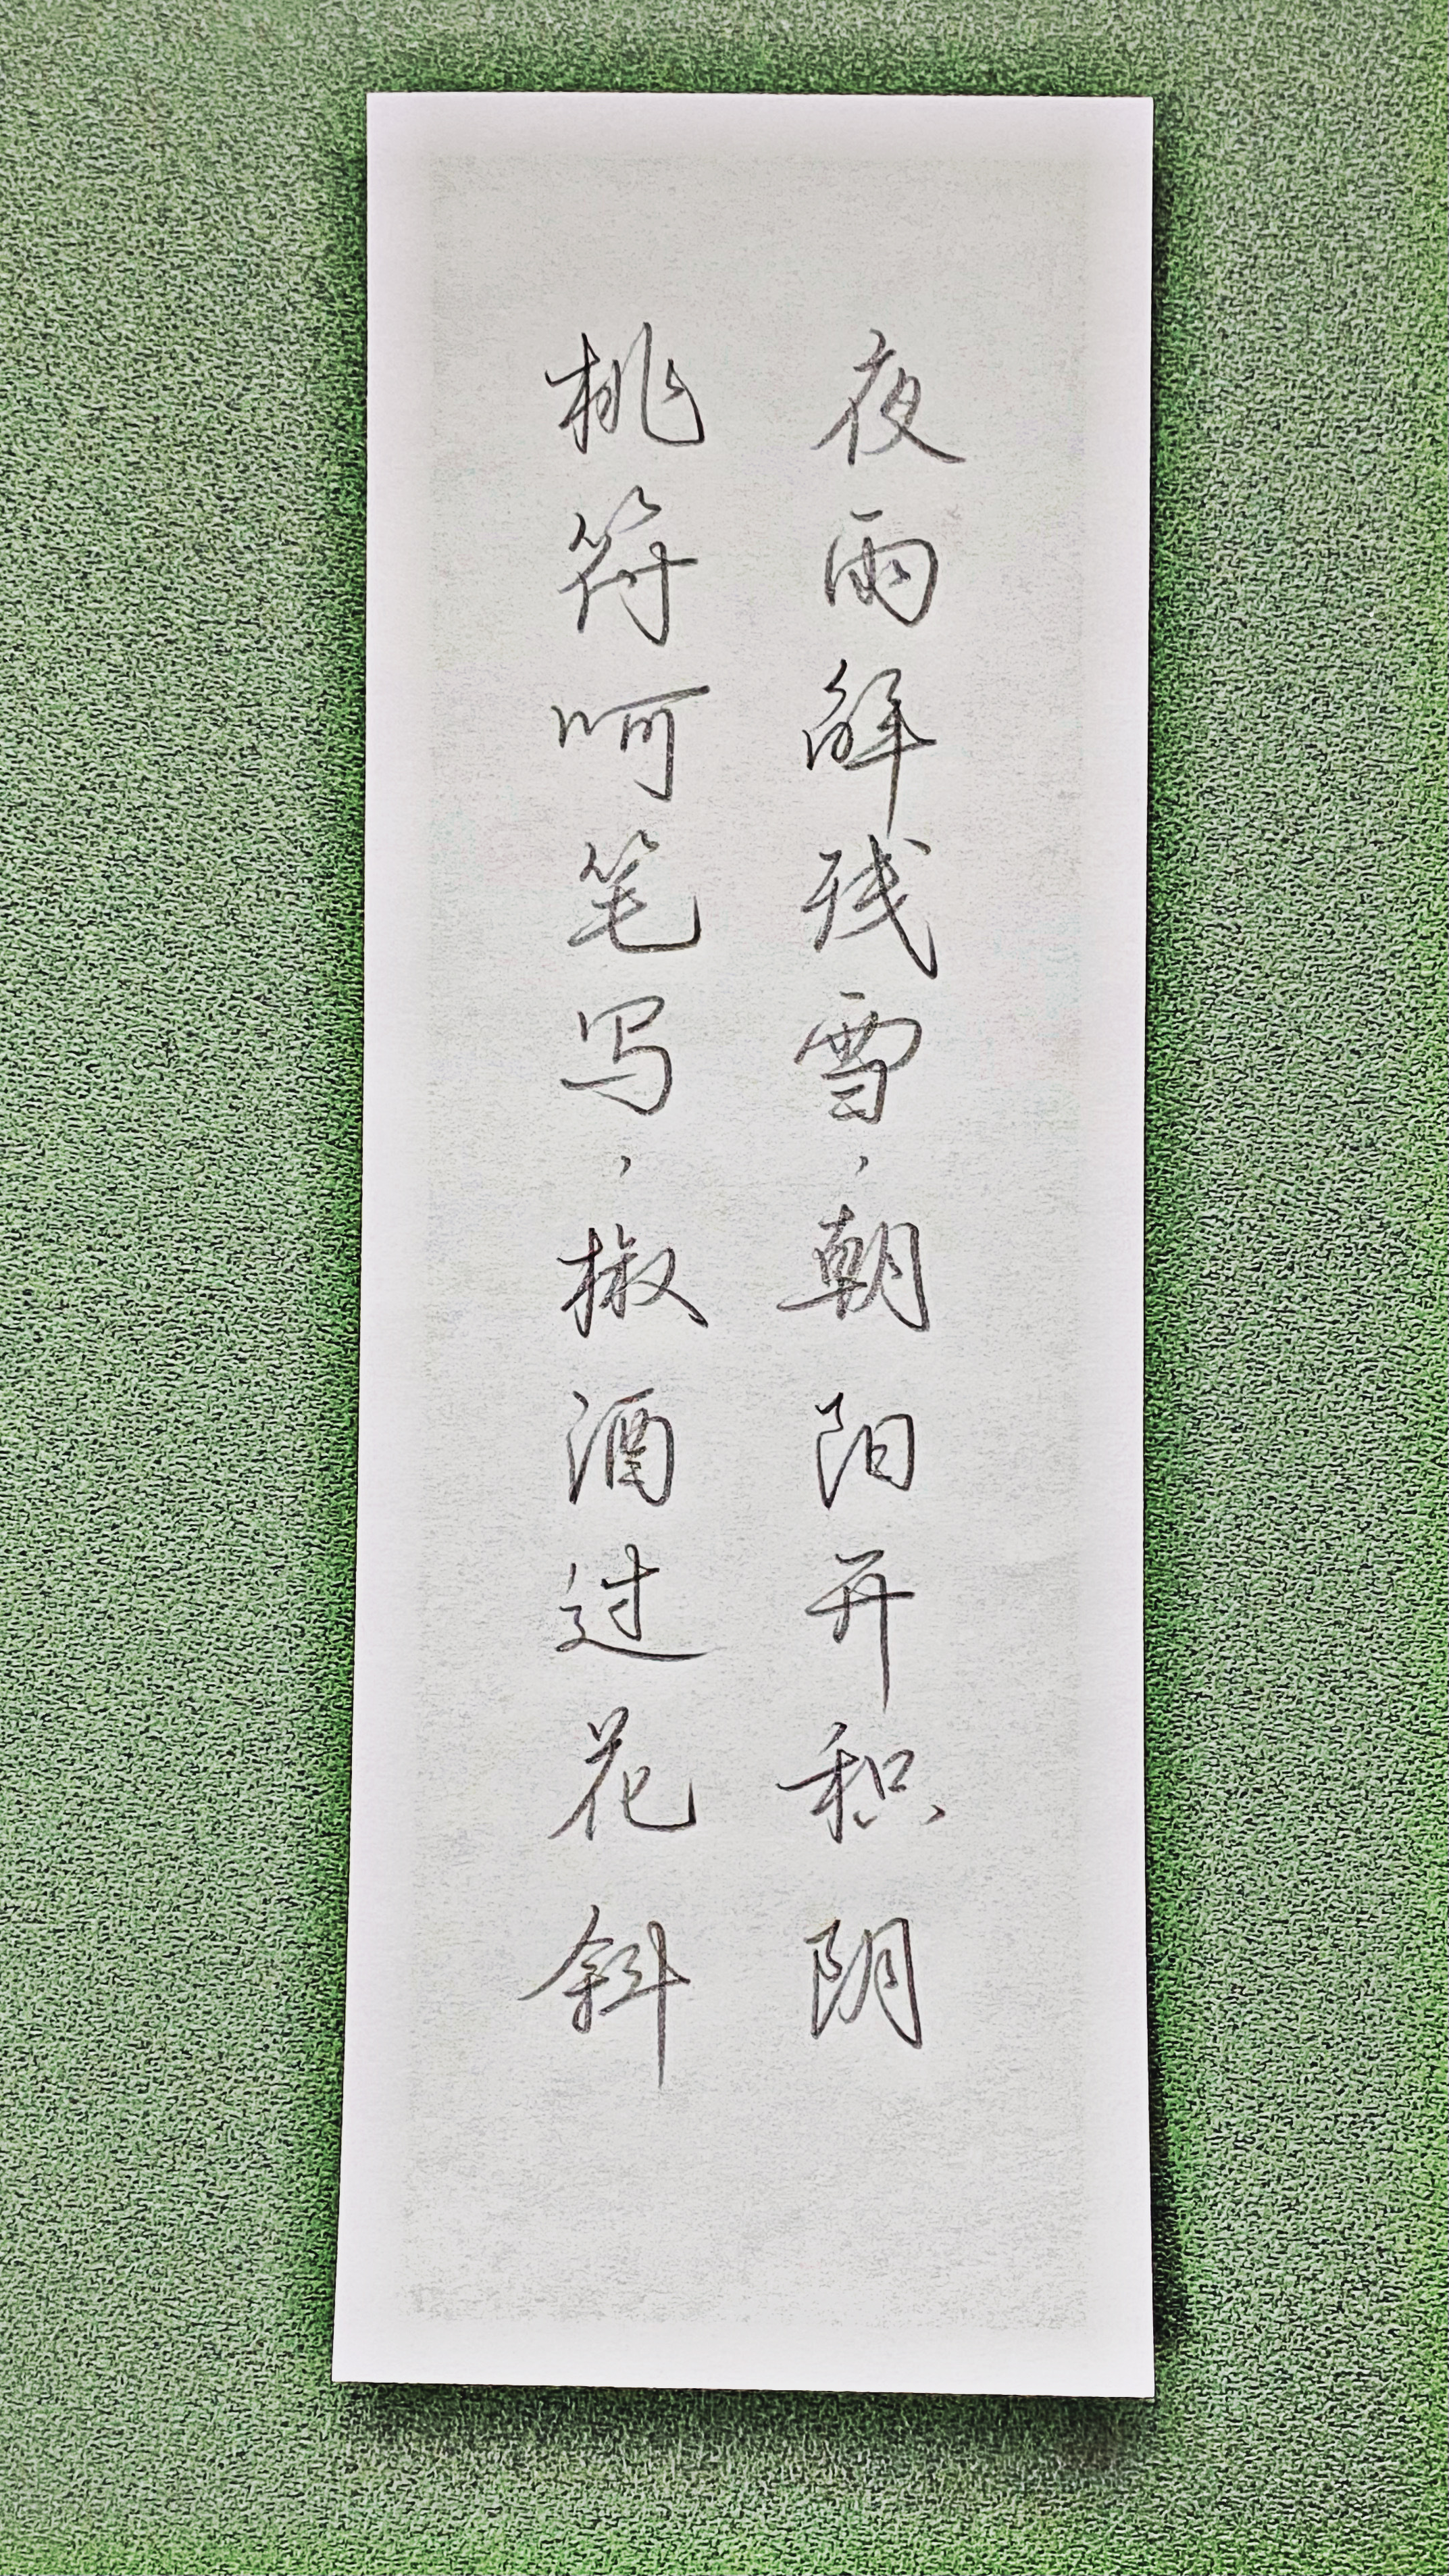 夜雨解残雪,朝阳开积阴
桃符呵笔写,椒酒过花斜